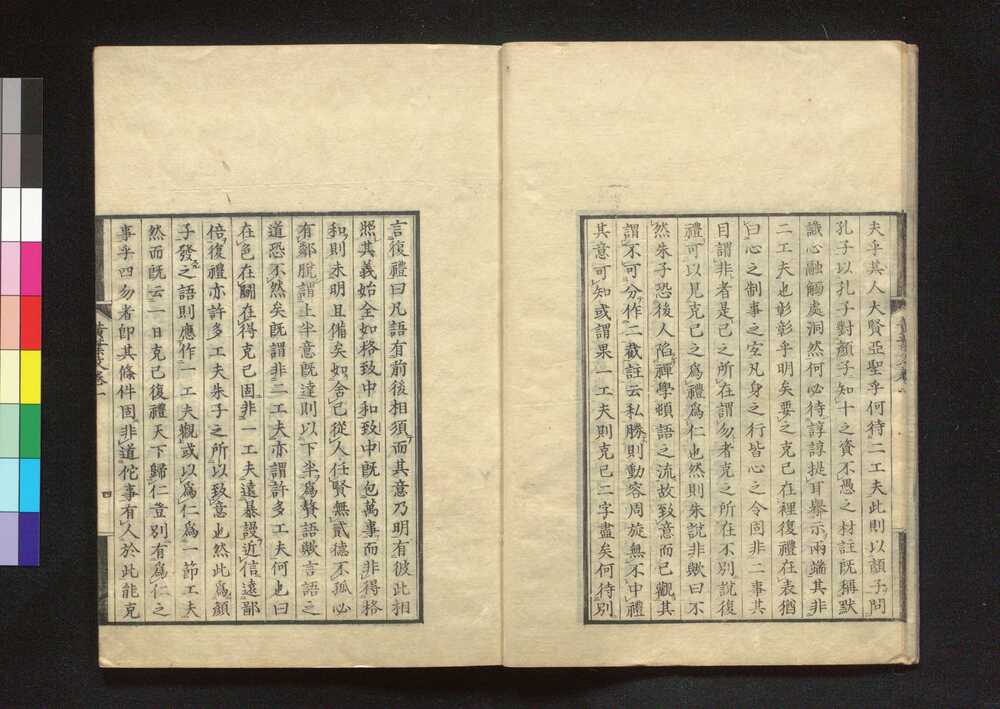 夫乎其人大賢亞聖乎何待二工夫此則以顏子問
孔子以孔子對顏子知十之資不愚之材註既稱默
識心融觸處洞然何必待諄諄提耳舉示兩端其非
二工夫也彰彰乎明矣要之克己在裡復禮在表猶
曰心之制事之宜凡身之行皆心之令固非二事其
目謂非者是己之所在謂勿者克之所在不別說復
禮可以見克己之為禮為仁也然則朱說非歟曰不
然朱子恐後人陷禪學頓語之流故致意而已觀其
謂不可分作二截註云私勝則動容周旋無不中禮
其意可知或謂果一工夫則克己二字盡矣何待別
言復禮曰凡語有前後相須而其意乃明有彼此相
照其義始全如格致中和致中既包萬事而非得格
和則未明且備矣如舍己從人任賢無貳德不孤必
有鄰脫謂上半意既達則以下半為贅語歟言語之
道恐不然矣既謂非二工夫亦謂許多工夫何也曰
在色在鬪在得克己固非一工夫遠暴謾近信遠鄙
倍復禮亦許多工夫朱子之所以致意也然此為顏
子發之語則應作一工夫觀或以為仁為一節工夫
然而既云一日克己復禮天下歸仁豈別有為仁之
事乎四勿者即其條件固非道佗事有人於此能克
黃葉文卷一
四